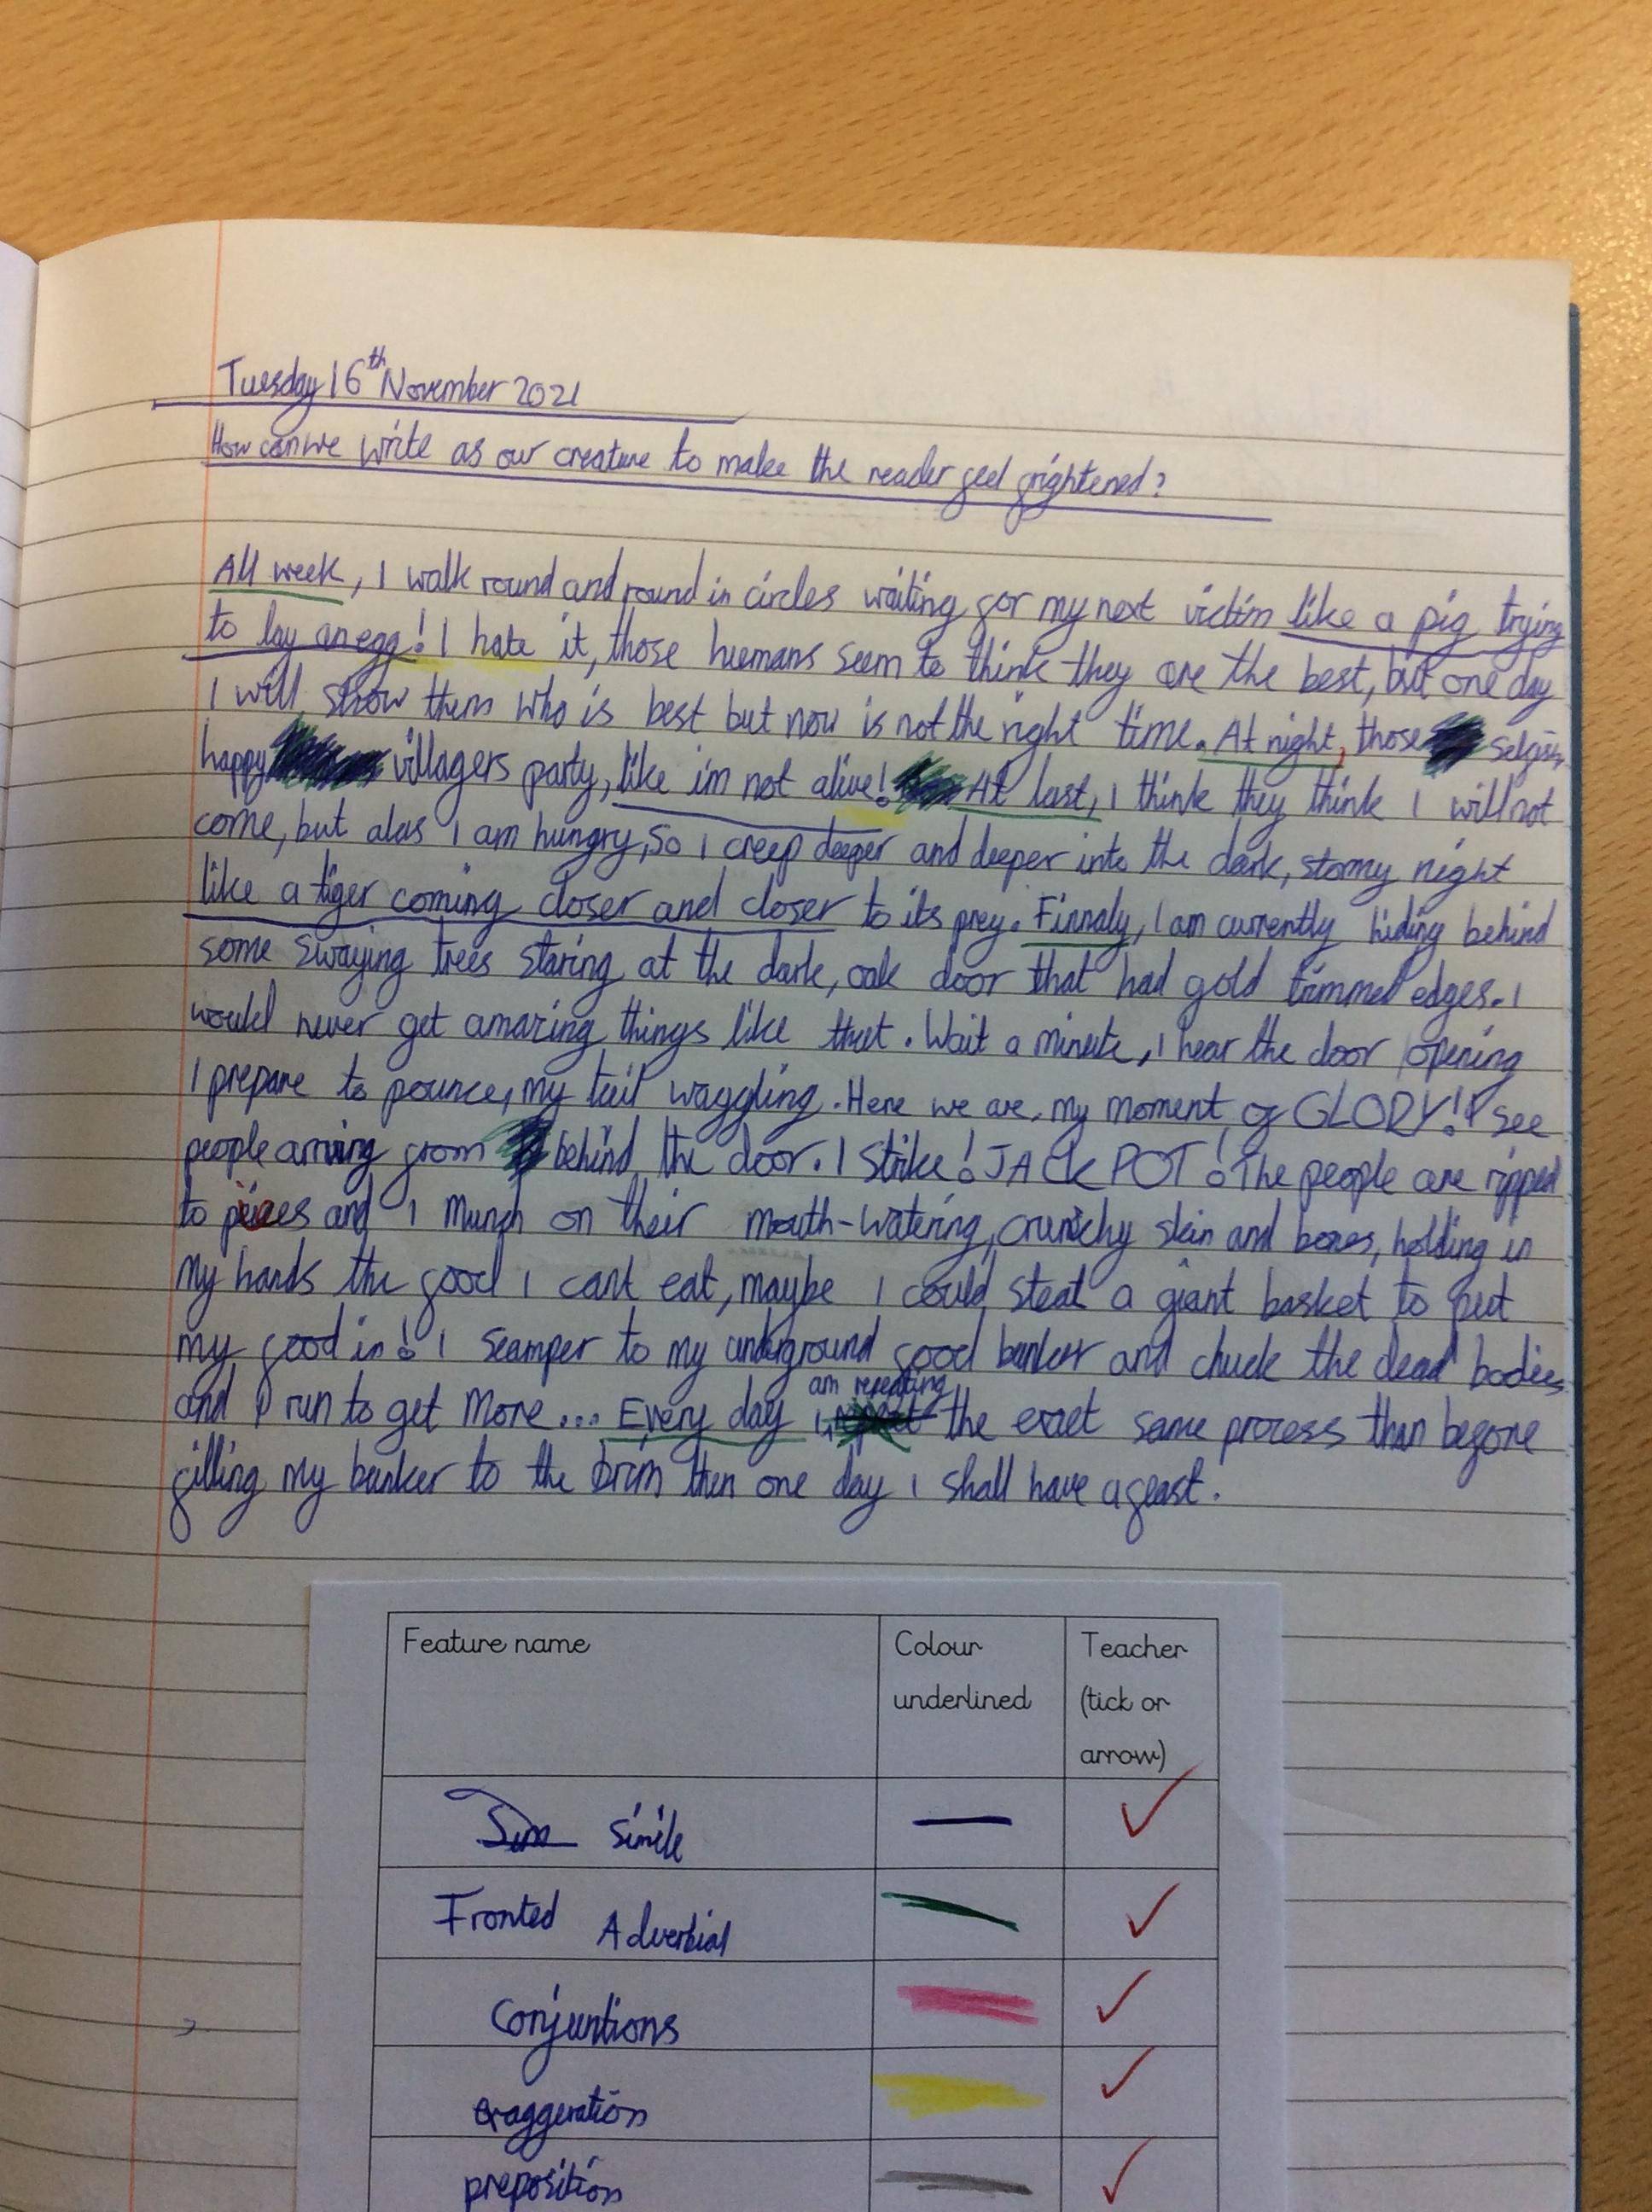 Tuesday 16th November 2021
How can we write as our creature to make the reader feel frightened?
All week, I walk round and round in circles waiting for my next victim like a pig trying
to lay an egg! I hate it, those humans seem to think they are the best, but one day
I will show them who is best but now is not the right time. At night, those selfish,
happy villagers party, like im not alive! At last, I think they think I will not
come, but alas I am hungry, So I creep deeper and deeper into the dark, stormy night
like a tiger coming closer and closer to its prey. Finnaly, I am currently hiding behind
some swaying trees staring at the dark, oak door that had gold trimmed edges. I
would never get amazing things like that. Wait a minute, I hear the door opening
I prepare to pounce, my tail waggling. Here we are, my moment of GLORY! I see
people arriving from behind the door. I strike! JACK POT! The people are ripped
to pieces and I munch on their mouth-watering, crunchy skin and bones, holding in
my hands the food I cant eat, maybe I could steal a giant basket to put
my food in! I scamper to my underground food bunker and chuck the dead bodies
and I run to get more... Every day I am repeating the exact same process than before
filling my bunker to the brim then one day I shall have a feast.
Feature name
Colour underlined
Teacher (tick or arrow)
Sim Simile
Fronted Adverbial
Conjuntions
exaggeration
preposition